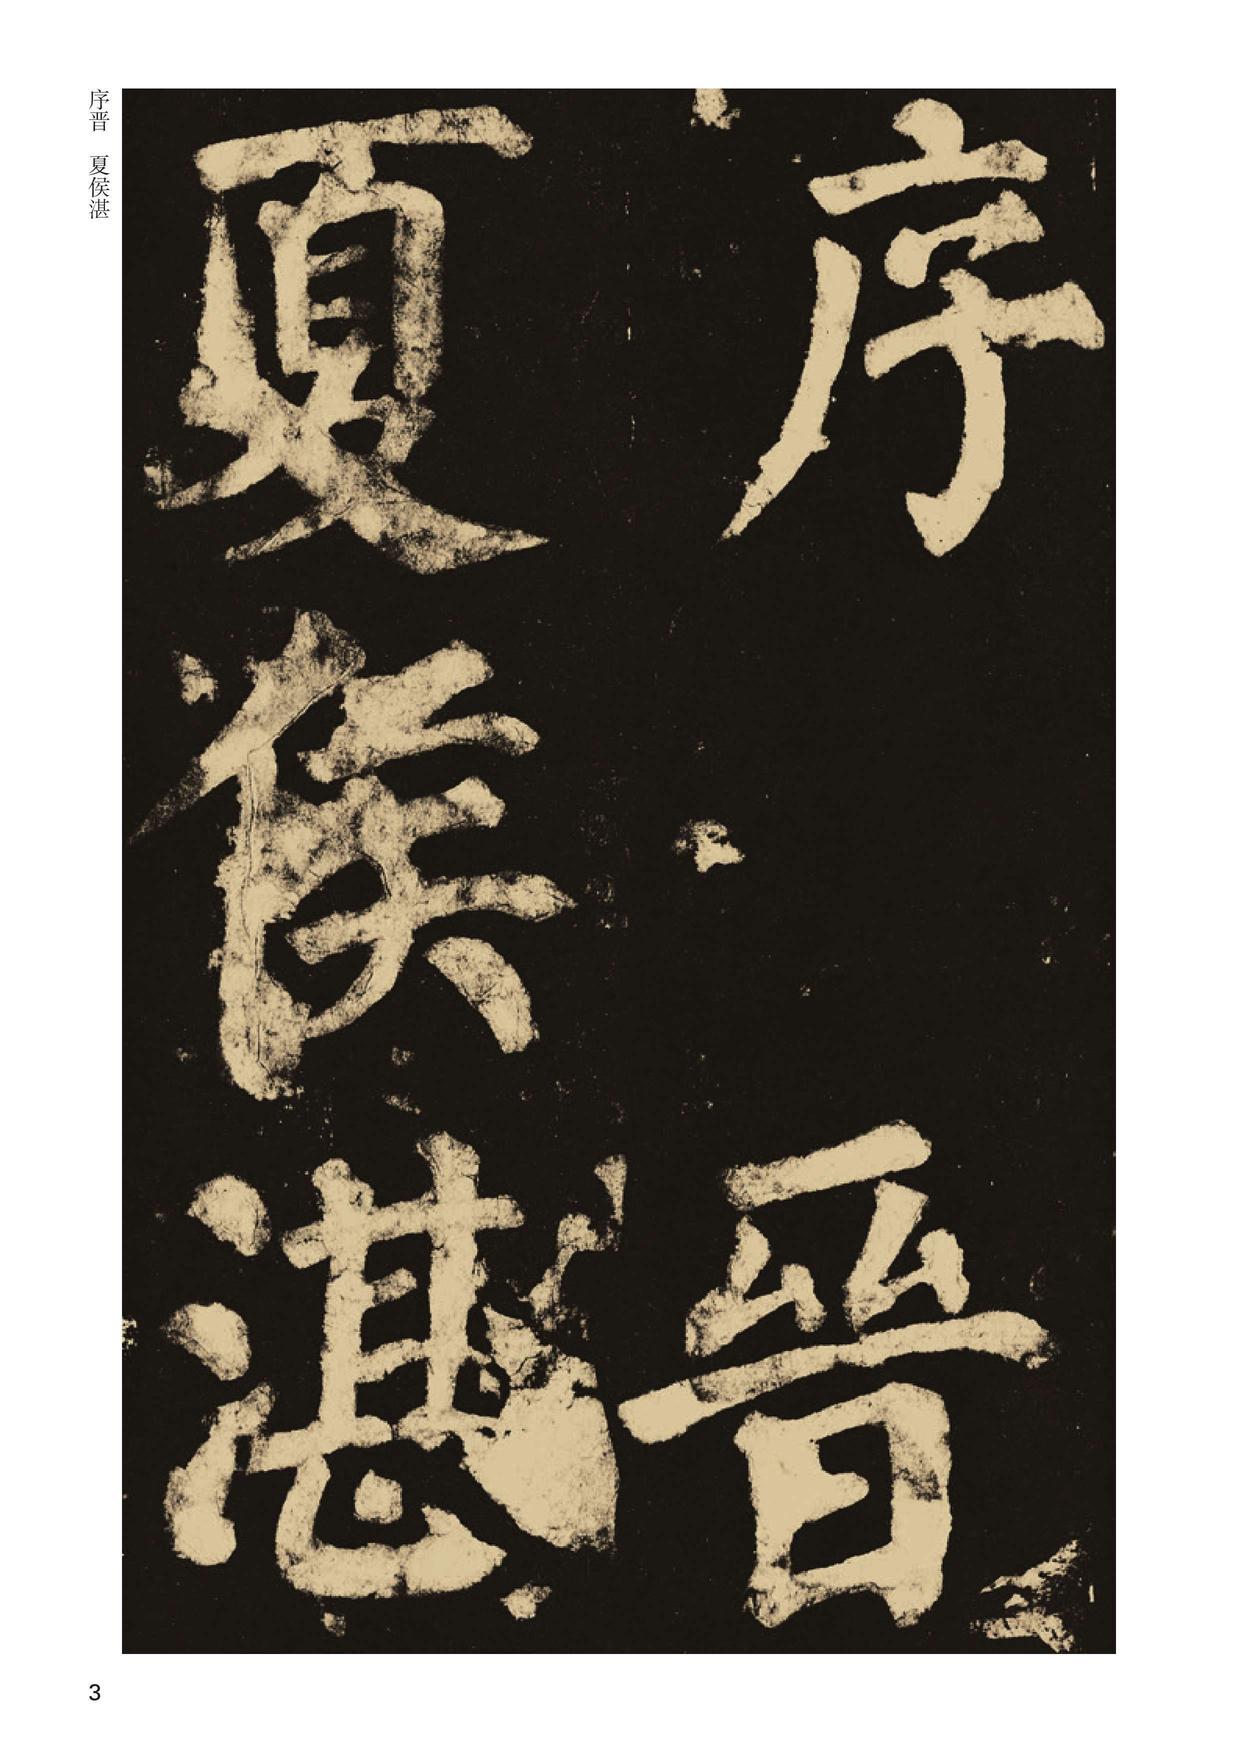 序晋
夏侯湛
序晋　夏侯湛
3